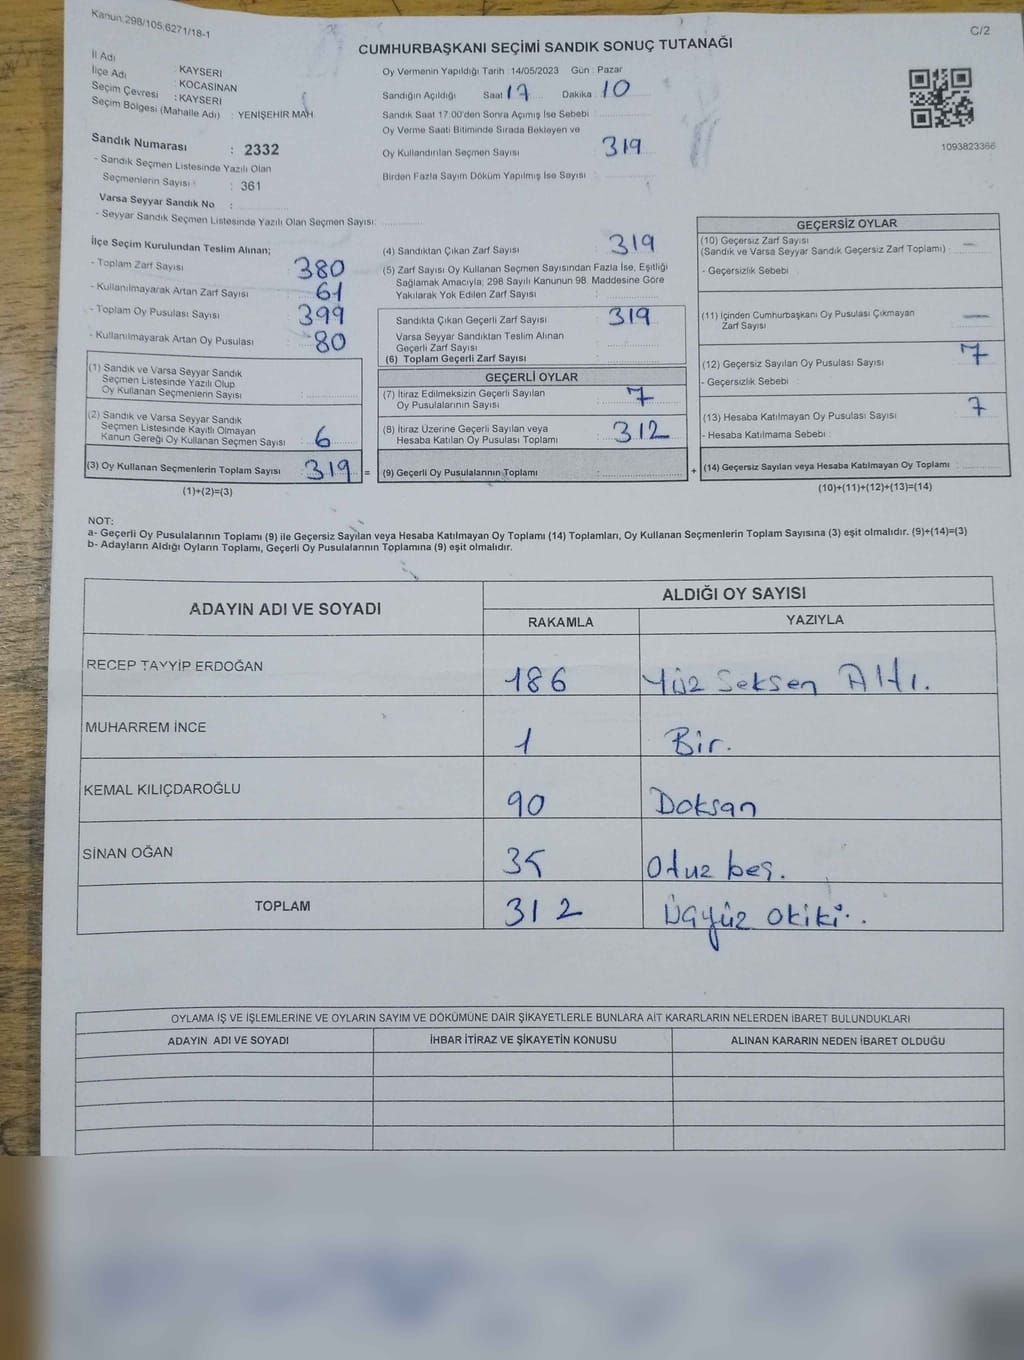 Kanun:298/105,6271/18-1
C/2
CUMHURBAŞKANI SEÇİMİ SANDIK SONUÇ TUTANAĞI
İl Adı : KAYSERİ
İlçe Adı : KOCASİNAN
Seçim Çevresi : KAYSERİ
Seçim Bölgesi (Mahalle Adı) : YENİŞEHİR MAH.
Sandık Numarası : 2332
- Sandık Seçmen Listesinde Yazılı Olan
Seçmenlerin Sayısı : 361
Varsa Seyyar Sandık No :
- Seyyar Sandık Seçmen Listesinde Yazılı Olan Seçmen Sayısı:
Oy Vermenin Yapıldığı Tarih : 14/05/2023 Gün : Pazar
Sandığın Açıldığı Saat 17 Dakika : 10
Sandık Saat 17.00'den Sonra Açımış İse Sebebi
Oy Verme Saati Bitiminde Sırada Bekleyen ve
Oy Kullandırılan Seçmen Sayısı : 319
Birden Fazla Sayım Döküm Yapılmış İse Sayısı :
1093823366
İlçe Seçim Kurulundan Teslim Alınan;
- Toplam Zarf Sayısı 380
- Kullanılmayarak Artan Zarf Sayısı 61
- Toplam Oy Pusulası Sayısı 399
- Kullanılmayarak Artan Oy Pusulası 80
(1) Sandık ve Varsa Seyyar Sandık
Seçmen Listesinde Yazılı Olup
Oy Kullanan Seçmenlerin Sayısı :
(2) Sandık ve Varsa Seyyar Sandık
Seçmen Listesinde Kayıtlı Olmayan
Kanun Gereği Oy Kullanan Seçmen Sayısı : 6
(3) Oy Kullanan Seçmenlerin Toplam Sayısı : 319 =
(1)+(2)=(3)
(4) Sandıktan Çıkan Zarf Sayısı : 319
(5) Zarf Sayısı Oy Kullanan Seçmen Sayısından Fazla İse, Eşitliği
Sağlamak Amacıyla; 298 Sayılı Kanunun 98. Maddesine Göre
Yakılarak Yok Edilen Zarf Sayısı :
Sandıkta Çıkan Geçerli Zarf Sayısı : 319
Varsa Seyyar Sandıktan Teslim Alınan
Geçerli Zarf Sayısı :
(6) Toplam Geçerli Zarf Sayısı :
GEÇERLİ OYLAR
(7) İtiraz Edilmeksizin Geçerli Sayılan
Oy Pusulalarının Sayısı : 7
(8) İtiraz Üzerine Geçerli Sayılan veya
Hesaba Katılan Oy Pusulası Toplamı : 312
(9) Geçerli Oy Pusulalarının Toplamı : +
GEÇERSİZ OYLAR
(10) Geçersiz Zarf Sayısı
(Sandık ve Varsa Seyyar Sandık Geçersiz Zarf Toplamı) : -
- Geçersizlik Sebebi
(11) İçinden Cumhurbaşkanı Oy Pusulası Çıkmayan
Zarf Sayısı : -
(12) Geçersiz Sayılan Oy Pusulası Sayısı : 7
- Geçersizlik Sebebi
(13) Hesaba Katılmayan Oy Pusulası Sayısı : 7
- Hesaba Katılmama Sebebi :
(14) Geçersiz Sayılan veya Hesaba Katılmayan Oy Toplamı :
(10)+(11)+(12)+(13)=(14)
NOT:
a- Geçerli Oy Pusulalarının Toplamı (9) ile Geçersiz Sayılan veya Hesaba Katılmayan Oy Toplamı (14) Toplamları, Oy Kullanan Seçmenlerin Toplam Sayısına (3) eşit olmalıdır. (9)+(14)=(3)
b- Adayların Aldığı Oyların Toplamı, Geçerli Oy Pusulalarının Toplamına (9) eşit olmalıdır.
ADAYIN ADI VE SOYADI
ALDIĞI OY SAYISI
RAKAMLA YAZIYLA
RECEP TAYYİP ERDOĞAN 186 Yüz Seksen Altı.
MUHARREM İNCE 1 Bir.
KEMAL KILIÇDAROĞLU 90 Doksan
SİNAN OĞAN 35 Otuz beş.
TOPLAM 312 Üçyüz okiki..
OYLAMA İŞ VE İŞLEMLERİNE VE OYLARIN SAYIM VE DÖKÜMÜNE DAİR ŞİKAYETLERLE BUNLARA AİT KARARLARIN NELERDEN İBARET BULUNDUKLARI
ADAYIN ADI VE SOYADI İHBAR İTİRAZ VE ŞİKAYETİN KONUSU ALINAN KARARIN NEDEN İBARET OLDUĞU